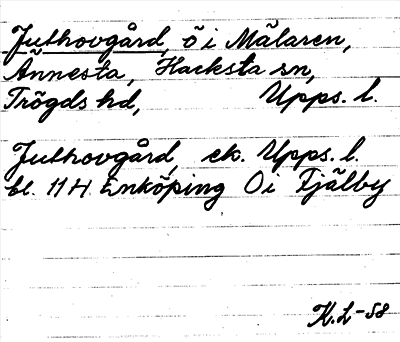 Juthovgård, ö i Mälaren,
Annesta, Hacksta sn,
Trögds hd, Upps. l.
Juthovgård, ek. Upps. l.
bl. 11 H. Enköping O i Fjälby
K.L-58